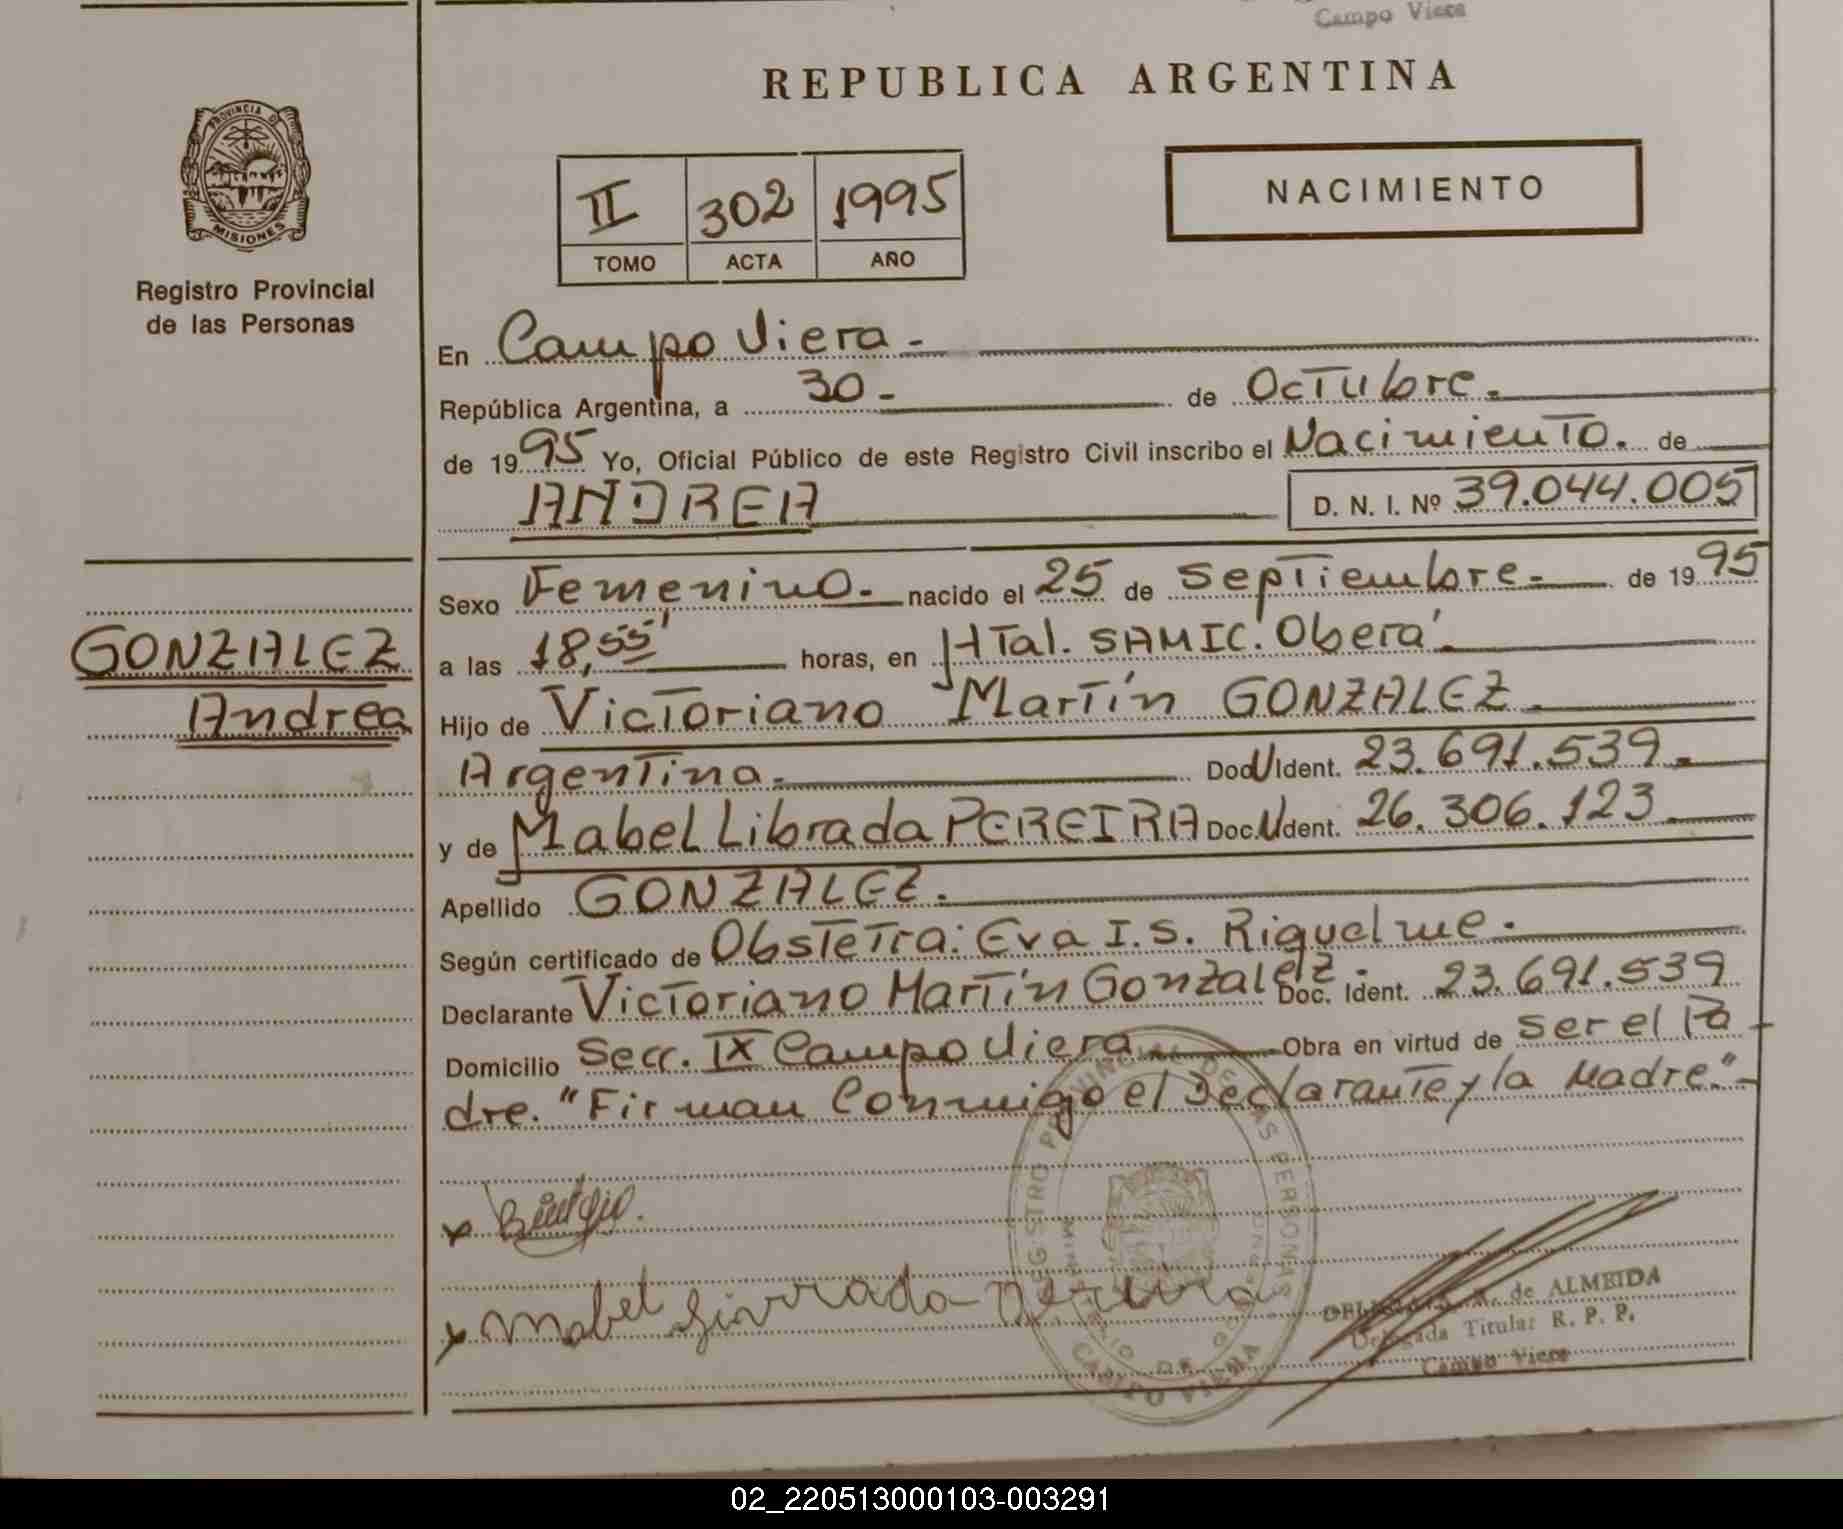 Campo Viera
REPUBLICA ARGENTINA
PROVINCIA DE
MISIONES
Registro Provincial
de las Personas
II 302 1995
TOMO ACTA AÑO
NACIMIENTO
En Campo Viera.-
República Argentina, a 30.- de Octubre.
de 1995 Yo, Oficial Público de este Registro Civil inscribo el Nacimiento. de
ANDREA D. N. I. Nº 39.044.005
Sexo Femenino.- nacido el 25 de Septiembre.- de 1995
GONZALEZ
Andrea
a las 18,55' horas, en Htal. SAMIC. Oberá.
Hijo de Victoriano Martín GONZALEZ.
Argentina. Doc. U Ident. 23.691.539.
y de Mabel Librada PEREIRA Doc. U Ident. 26.306.123.
Apellido GONZALEZ.
Según certificado de Obstetra: Eva I.S. Riquelme.
Declarante Victoriano Martín Gonzalez. Doc. Ident. 23.691.539
Domicilio Secc. IX Campo Viera Obra en virtud de ser el Pa-
dre. "Firman Conmigo el Declarante y la Madre."-
REGISTRO PROVINCIAL DE LAS PERSONAS
CAMPO VIERA
x
x Mabel Livrada Pereira
de ALMEIDA
Delegada Titular R. P. P.
Campo Viera
02_220513000103-003291